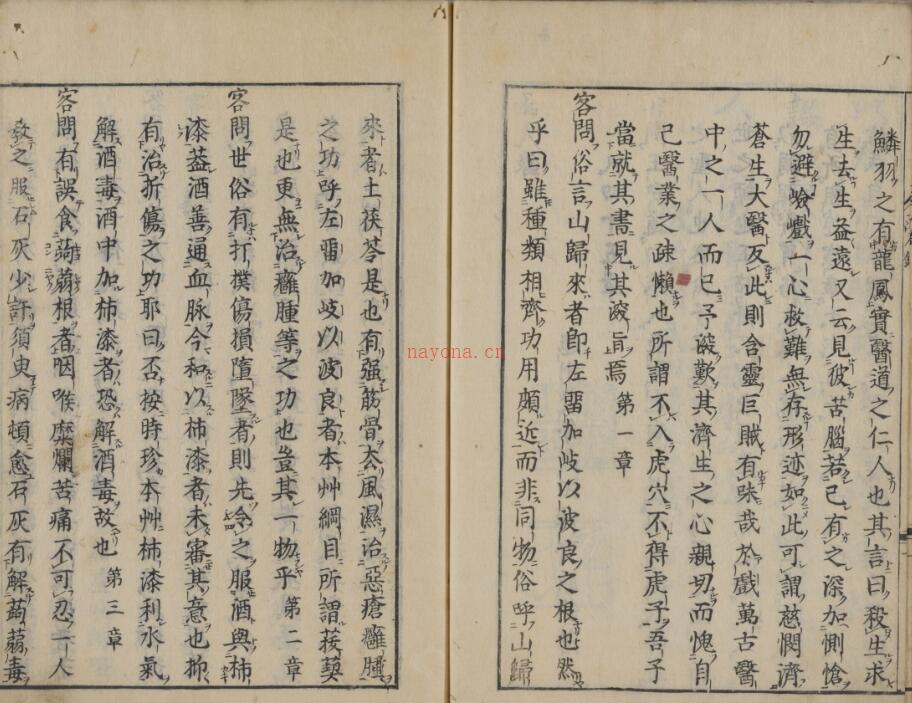 鱗羽之有龍鳳實醫道之仁人也其言曰殺生求
生去生益遠又云見彼苦腦若己有之深加惻愴
勿避嶮巇一心救難無存形迹如此可謂慈憫濟
蒼生大醫反此則含靈巨賊有味哉於戲萬古醫
中之一人而已予深歎其濟生之心親切而愧自
己醫業之疎懶也所謂不入虎穴不得虎子吾子
當就其書見其深旨焉 第一章
客問俗言山歸來者即左畱加岐以波良之根也然
乎曰雖種類相齊功用頗近而非同物俗呼山歸
來者土茯苓是也有强筋骨去風濕治惡瘡癰腫
之功呼左畱加岐以波良者本艸綱目所謂菝葜
是也更無治癰腫等之功也豈其一物乎 第二章
客問世俗有打撲傷損墮墜者則先令之服酒與柹
漆葢酒善通血脉今和以柹漆者未審其意也抑
有治折傷之功耶曰否按時珍本艸柹漆利水氣
解酒毒酒中加柹漆者恐解酒毒故也 第三章
客問有誤食蒟蒻根者咽喉糜爛苦痛不可忍一人
教之服石灰少許須臾病頓愈石灰有解蒟蒻毒
nayona.cn